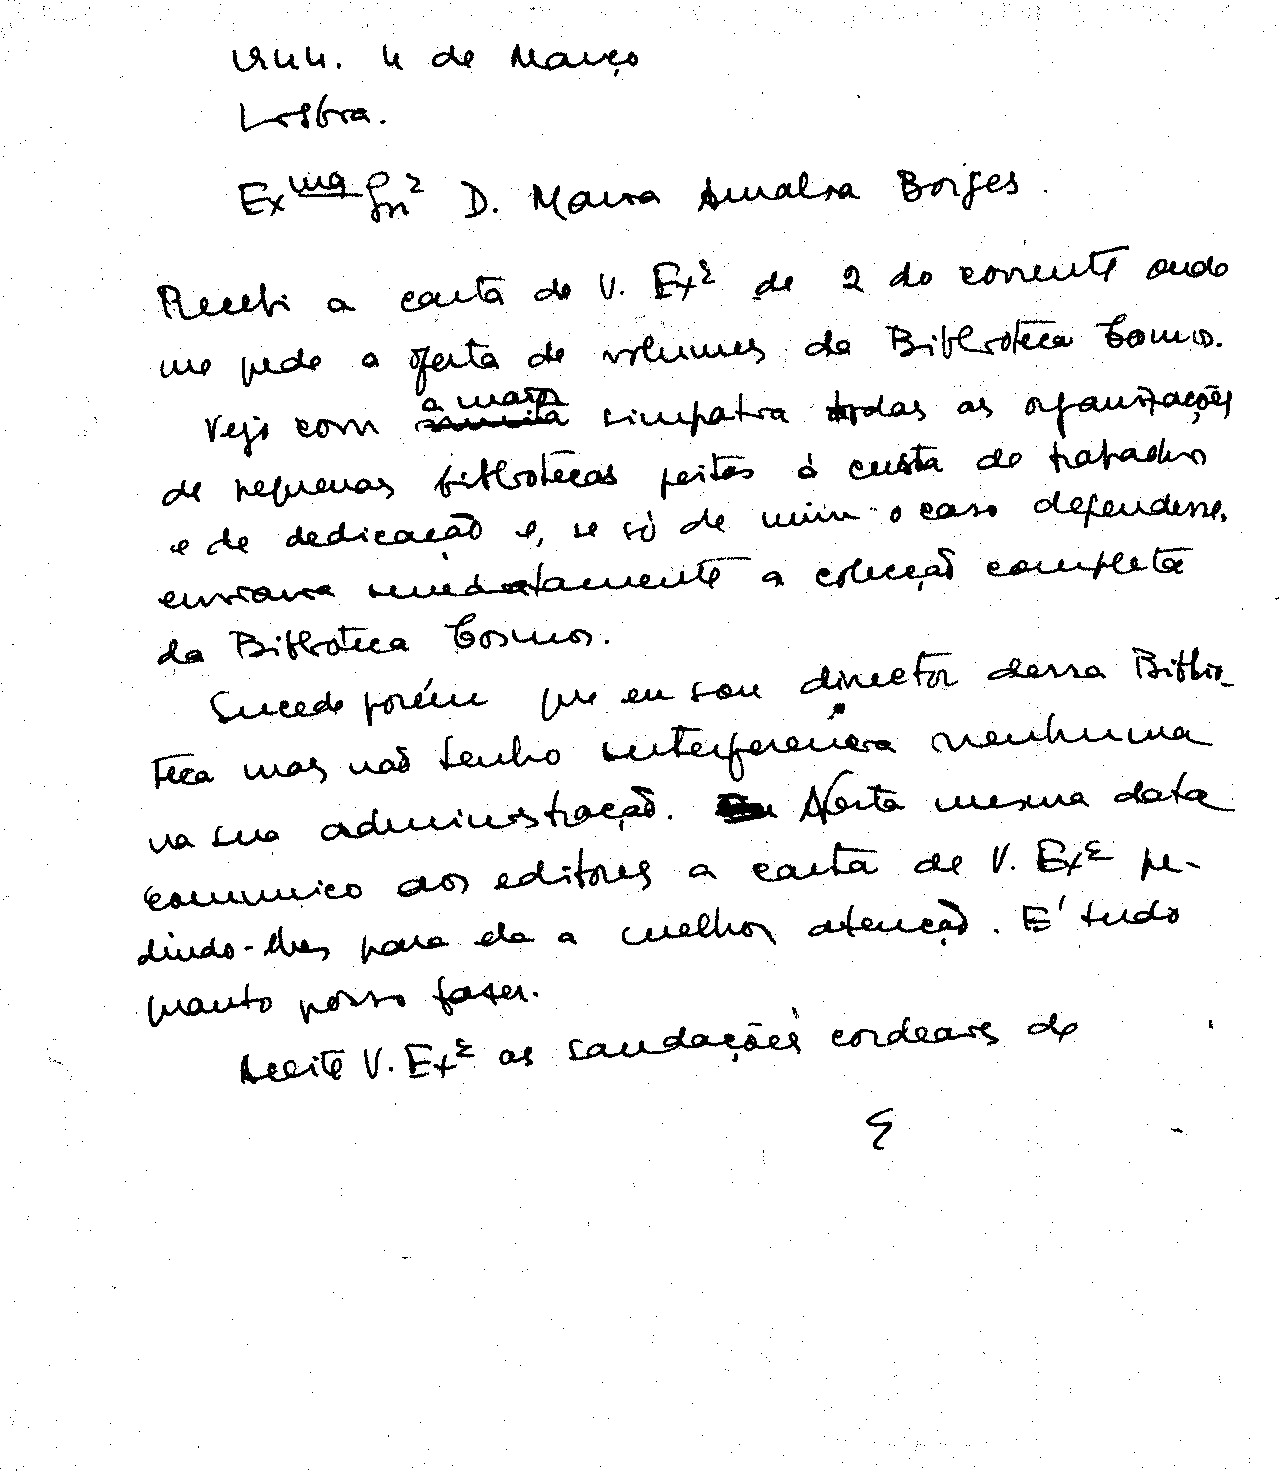 1944. 4 de Março
Lisboa.
Exma Snra D. Maria Amalia Borges.
Recebi a carta de V. Exª de 2 do corrente onde
me pede a oferta de volumes da Biblioteca Cosmos.
a maior
Vejo com muita simpatia todas as organizações
de pequenas bibliotecas feitas à custa de trabalho
e de dedicação e, se só de mim o caso dependesse,
enviaria imediatamente a colecção completa
da Biblioteca Cosmos.
Sucede porém que eu sou director dessa Biblio-
teca mas não tenho interferencia nenhuma
na sua administração. Nesta mesma data
comunico aos editores a carta de V. Exª pe-
dindo-lhes para ela a melhor atenção. E' tudo
quanto posso fazer.
Aceite V. Exª as saudações cordeais de